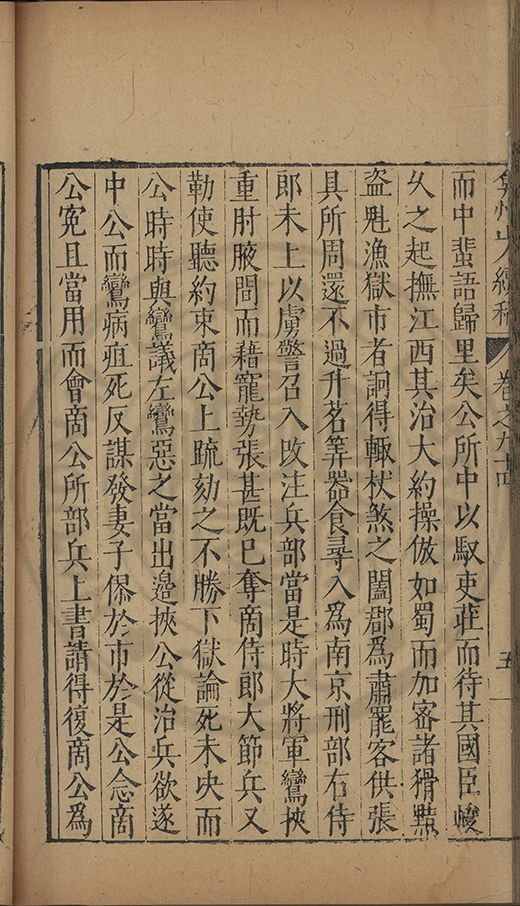 弇州山人續稿 卷之九十四 五
而中蜚語歸里矣公所中以馭吏莊而待其國臣峻
久之起撫江西其治大約操倣如蜀而加密諸猾黠
盜魁漁獄市者詗得輒杖煞之闔郡爲肅罷客供張
具所周還不過升茗筭器食尋入爲南京刑部右侍
郎未上以虜警召入改注兵部當是時大將軍鸞挾
重肘腋間而藉寵勢張甚既已奪商侍郎大節兵又
勒使聽約束商公上疏劾之不勝下獄論死未央而
公時時與鸞議左鸞惡之當出邉挾公從治兵欲遂
中公而鸞病疽死反謀發妻子僇於市於是公念商
公冤且當用而會商公所部兵上書請得復商公爲